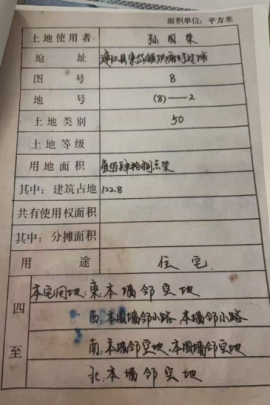 面积单位: 平方米
土地使用者 孙国荣
地址
图号 8
地号 (8)—2
土地类别 50
土地等级
用地面积
其中: 建筑占地 122.8
共有使用权面积
其中: 分摊面积
用途 住宅
四至 本宅用地 东本墙邻空地
西、本围墙邻小路、本墙邻小路
南、本墙邻空地、本围墙邻空地
北、本墙邻空地